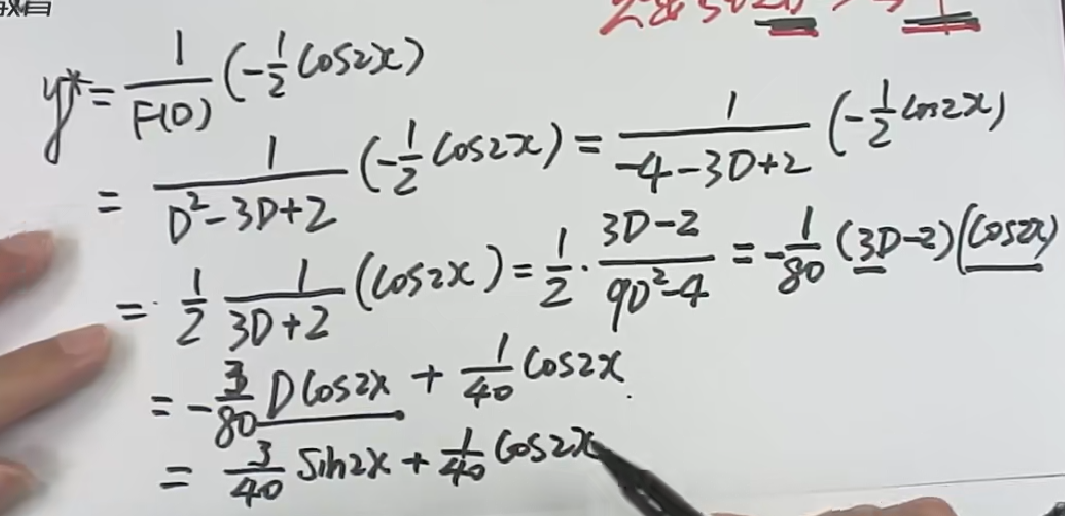 教育
y* = \frac{1}{F(D)} (-\frac{1}{2} cos2x)
= \frac{1}{D^2-3D+2} (-\frac{1}{2} cos2x) = \frac{1}{-4-3D+2} (-\frac{1}{2} cos2x)
= \frac{1}{2} \frac{1}{3D+2} (cos2x) = \frac{1}{2} · \frac{3D-2}{9D^2-4} = -\frac{1}{80} (3D-2)(cos2x)
= -\frac{3}{80} D cos2x + \frac{1}{40} cos2x.
= \frac{3}{40} sin2x + \frac{1}{40} cos2x